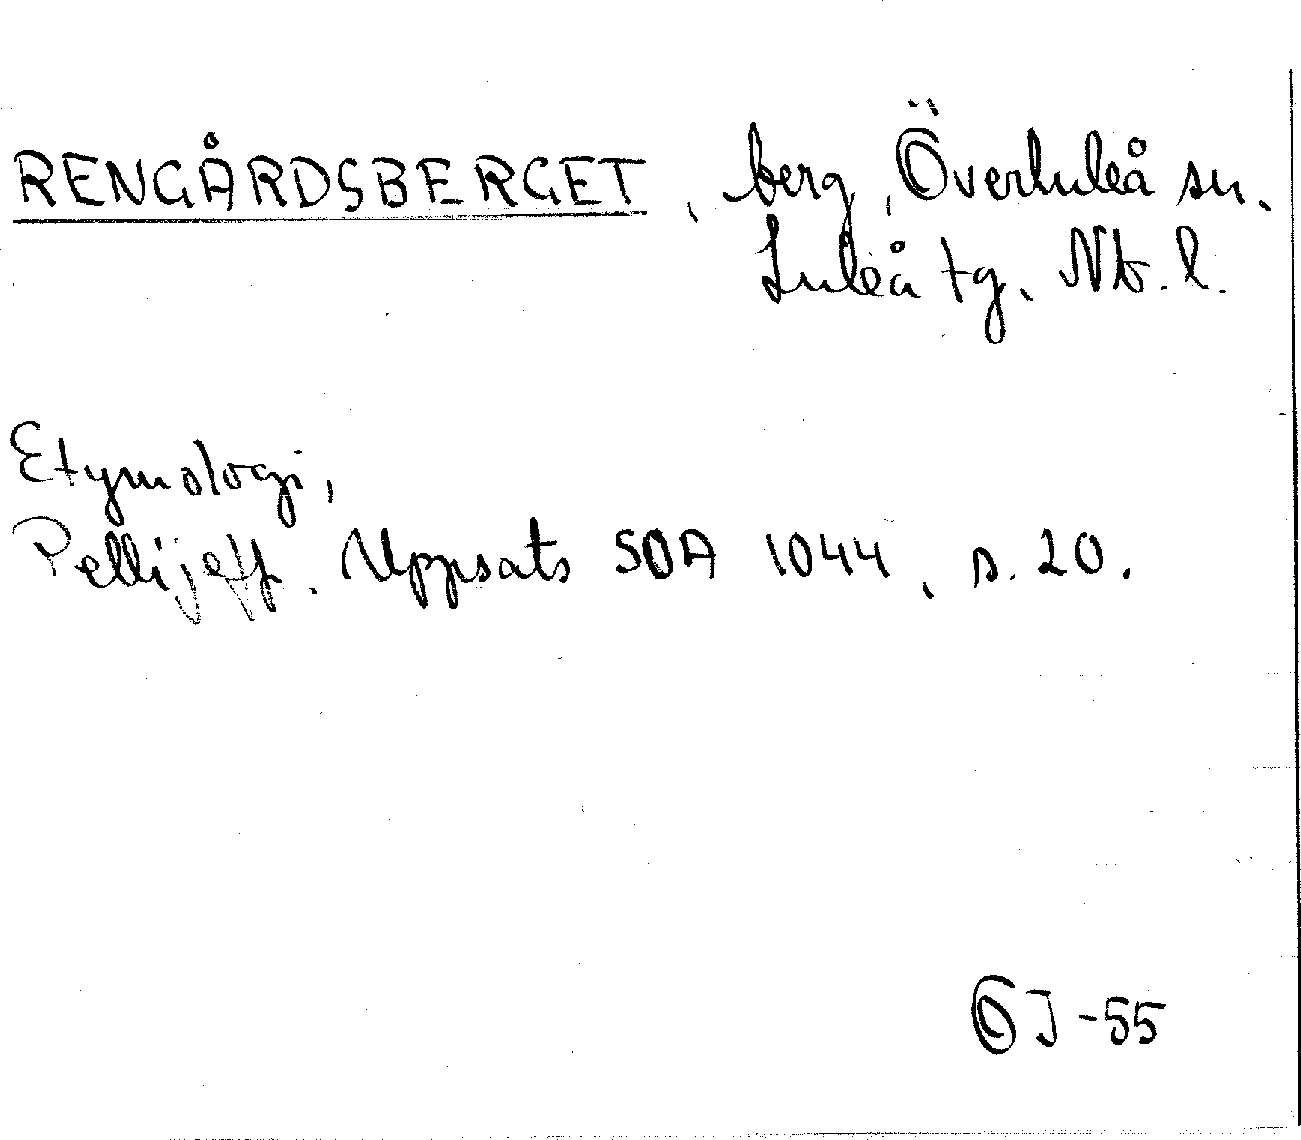 RENGÅRDSBERGET, berg, Överluleå sn.
Luleå tg. Nb. l.
Etymologi,
Pellijeff. Uppsats SOA 1044, s. 20.
OJ -55